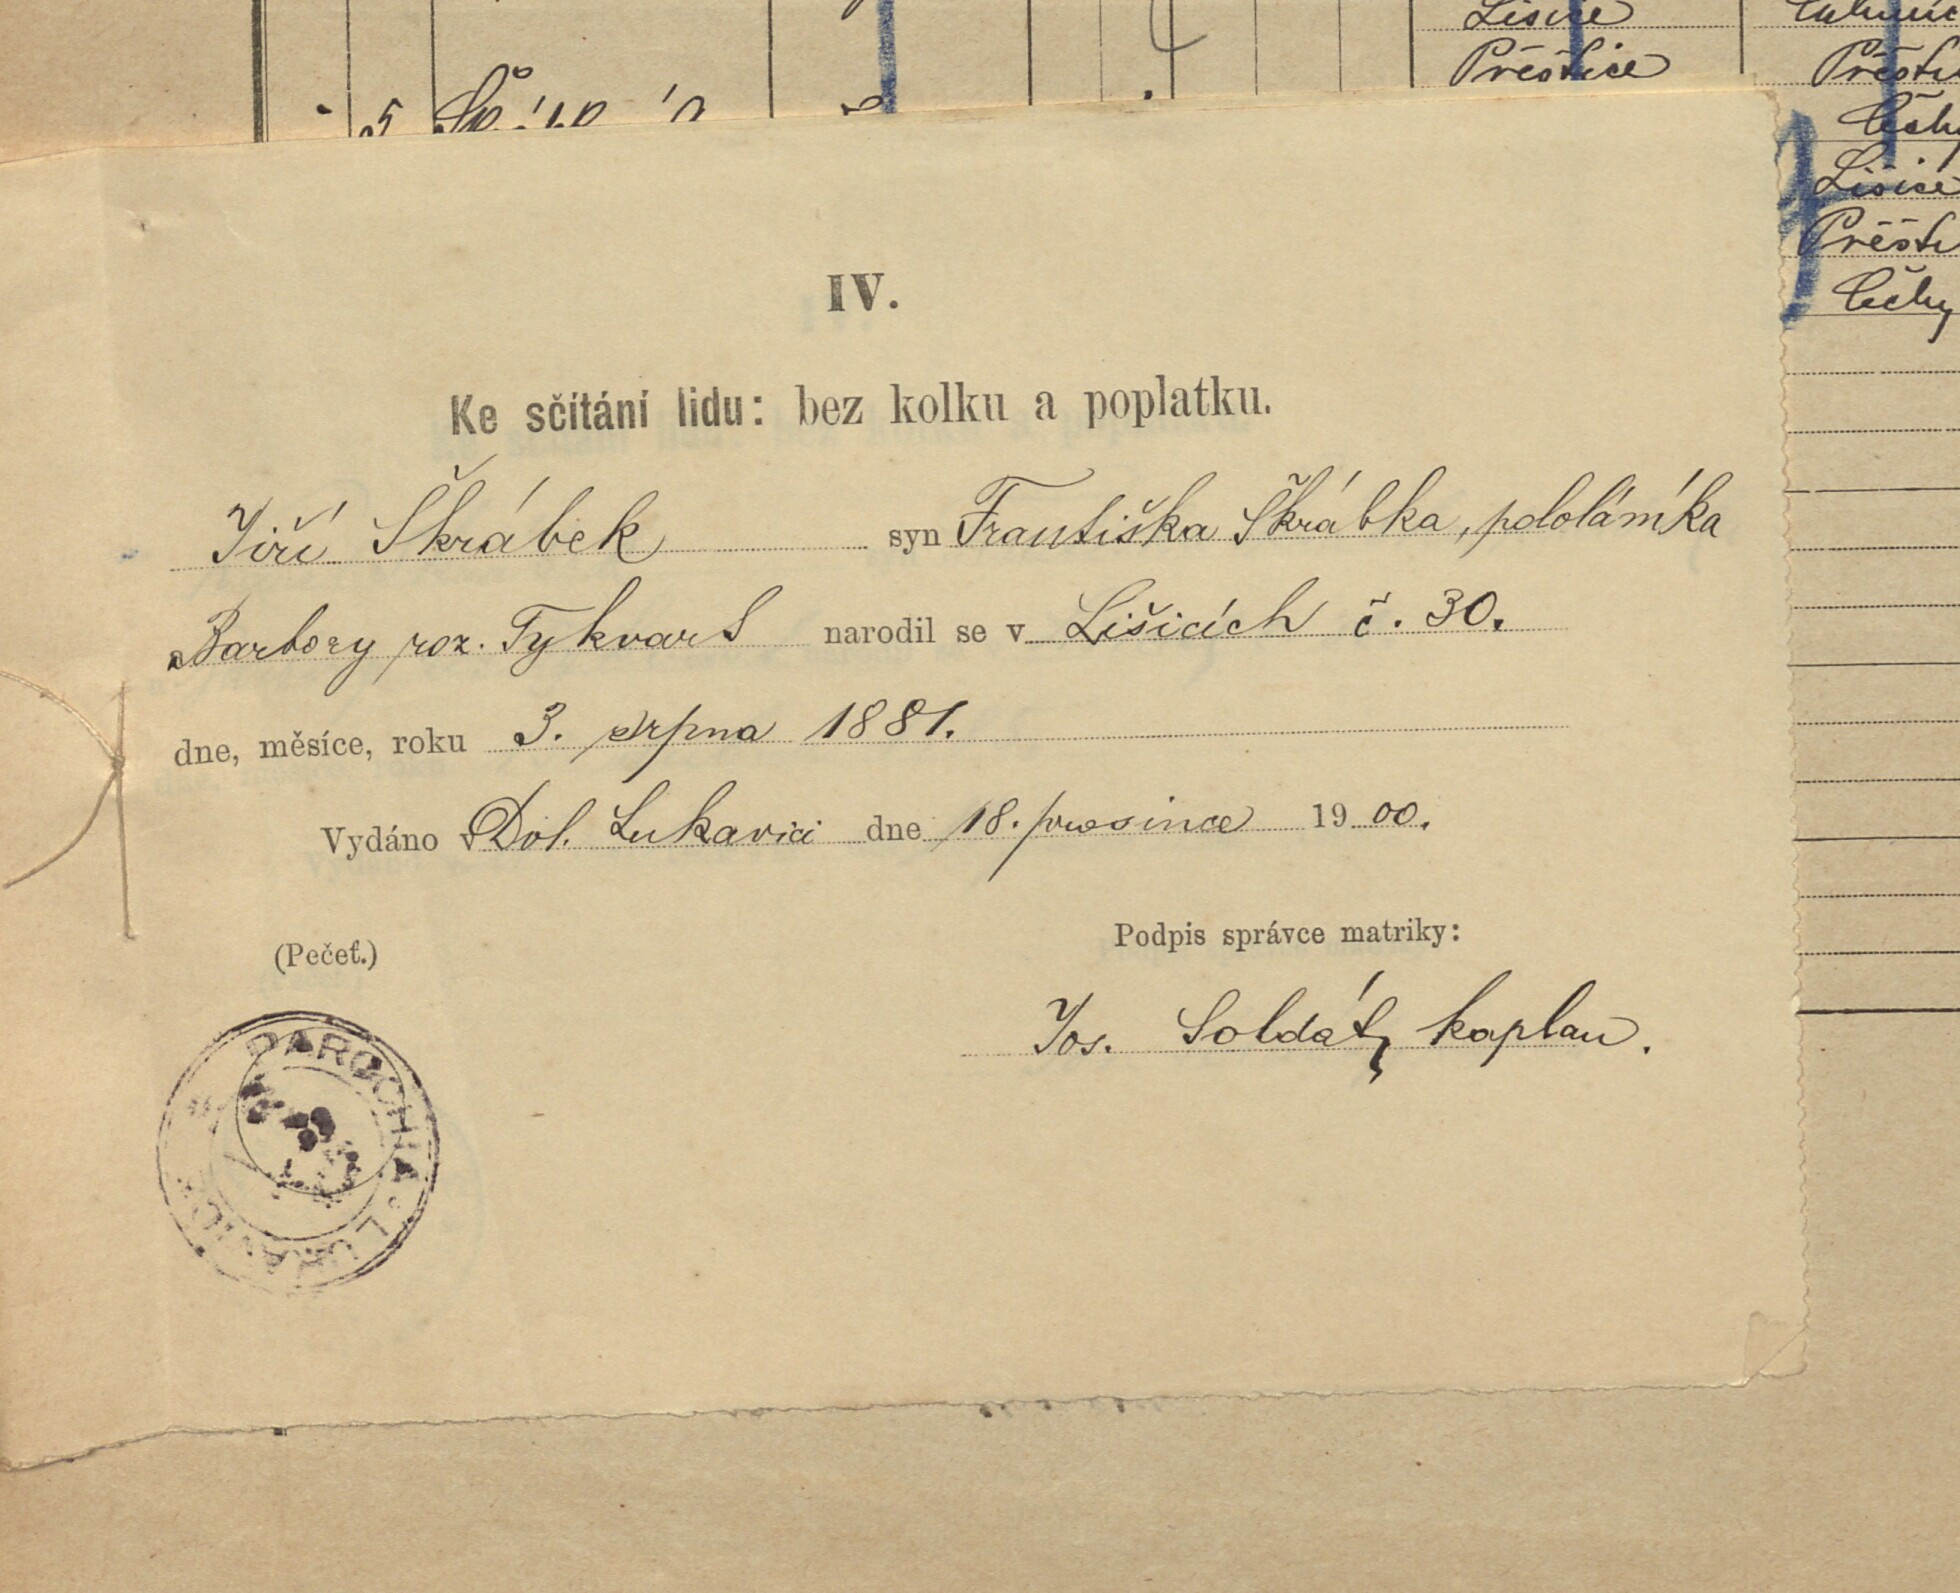 Lišice
Přeštice
Přešti
Čechy
Lišice
Přešti
Čechy
5
IV.
Ke sčítání lidu: bez kolku a poplatku.
Jiří Škrábek syn Františka Škrábka, pololámka
Barbory roz. Tykvart narodil se v Lišicích č. 30.
dne, měsíce, roku 3. srpna 1881.
Vydáno v Dol. Lukavici dne 18. prosince 1900.
(Pečeť.)
Podpis správce matriky:
Jos. Soldát, kaplan.
PAROCHIA